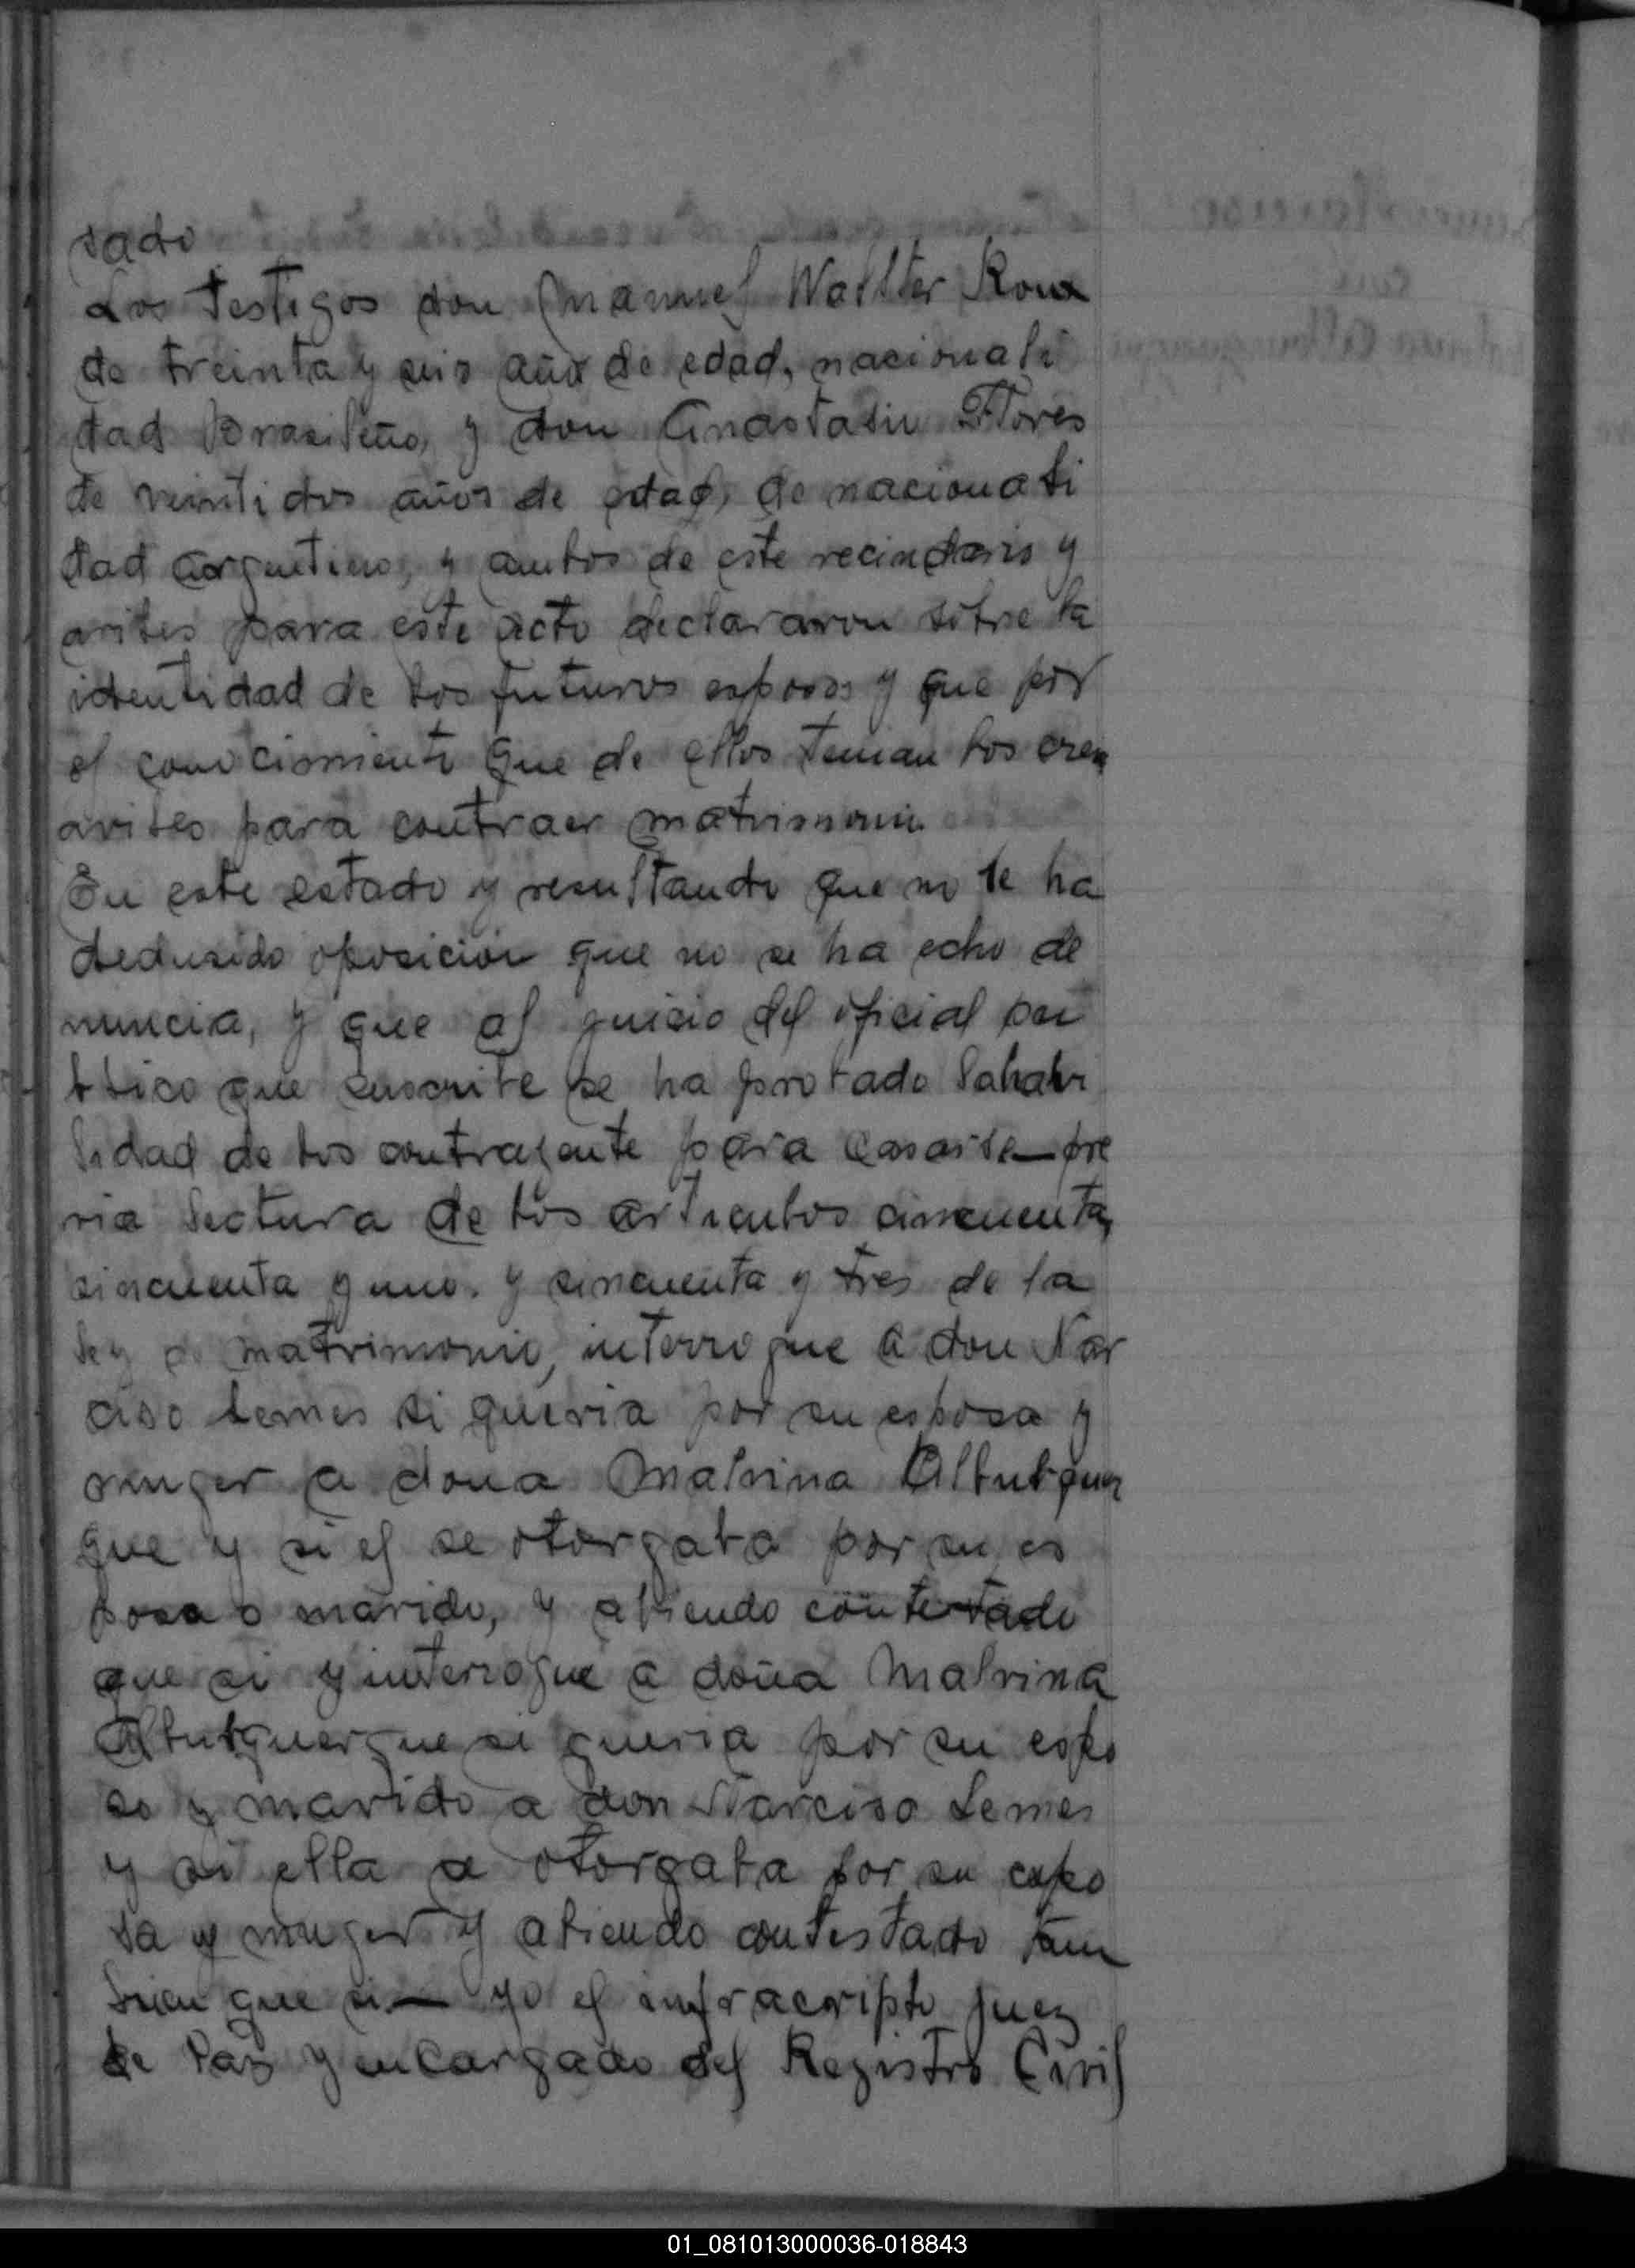 sado
Los Testigos don Manuel Wallter Roux
de treinta y seis años de edad, nacionali
dad Brasileño, y don Anastasio Flores
de veintidos años de edad, de nacionali
dad argentino, y ambos de este vecindario y
aviles para este acto declararon sobre la
identidad de los futuros esposos y que por
el conocimiento que de ellos tenian los creen
aviles para contraer matrimonio.
En este estado y resultando que no se ha
dedusido oposición que no se ha echo de
nuncia, y que al juicio del oficial pu
blico que suscribe se ha probado la habi
lidad de los contrayente para casarse — pre
via lectura de los articulos cincuenta,
sincuenta y uno. y sincuenta y tres de la
ley de matrimonio, interrogue a don Nar
ciso Lemes si queria por su esposa y
muger a dona Malvina Albutquer
que y si el se otorgaba por su es
poso o marido, y abiendo contestado
que si y interrogué a doña Malvina
Albutquerque si queria por su espo
so y marido a don Narciso Lemes
y si ella se otorgaba por su espo
sa y muger y abiendo contestado tam
bien que si — yo el infracripto juez
de Paz y encargado del Registro Civil
01_081013000036-018843